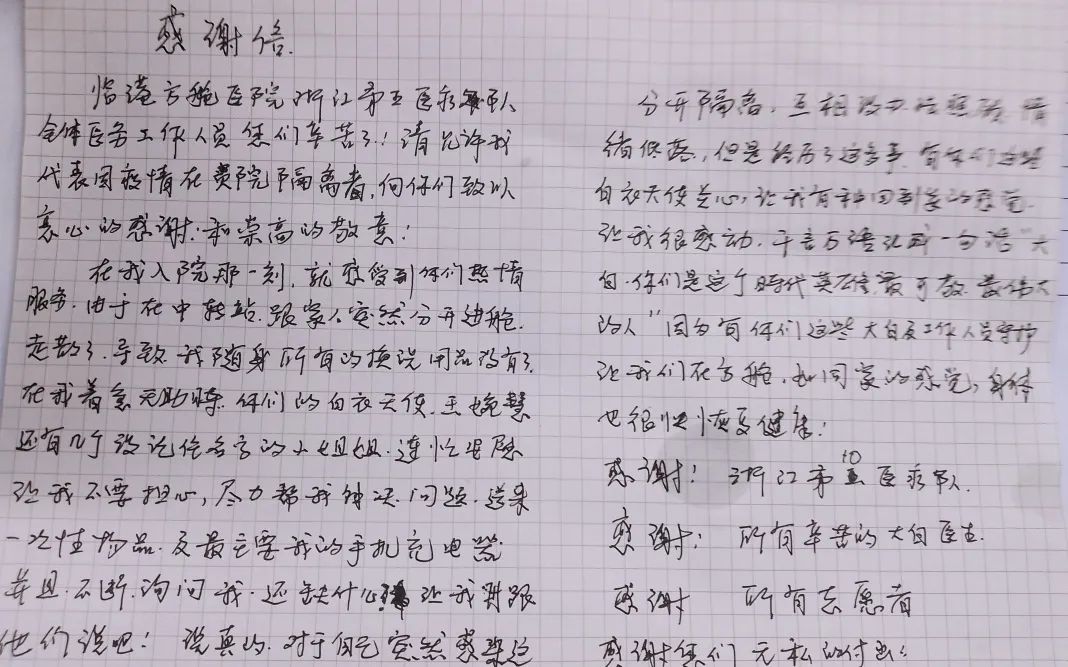 感谢信.
临港方舱医院浙江第五医疗队
全体医务工作人员您们辛苦了！请允许我
代表因疫情在贵院隔离者，向你们致以
衷心的感谢！和崇高的敬意！
在我入院那一刻，就感受到你们热情
服务.由于在中转站.跟家人突然分开进舱.
走散了.导致我随身所有的换洗用品没有了.
在我着急无助时.你们的白衣天使.王婉慧
还有几个没记住名字的小姐姐.连忙安慰
让我不要担心，尽力帮我解决问题.送来
一次性物品.及最主要我的手机充电器
并且.不断.询问我.还缺什么 让我
他们说吧！说真的.对于自己突然感染
分开隔离，互相没办法照顾，情
绪低落，但是经历了这多事.有你们这些
白衣天使关心，让我有种回到家的感觉.
让我很感动.千言万语汇成一句话"大
白.你们是这个时代英雄.最可敬.最伟大
的人"因为有你们这些大白及工作人员守护
让我们在方舱.如同家的感觉，身体
也很快恢复健康！
感谢：浙江第五医疗队.
感谢：所有辛苦的大白医生.
感谢 所有志愿者
感谢您们无私的付出！